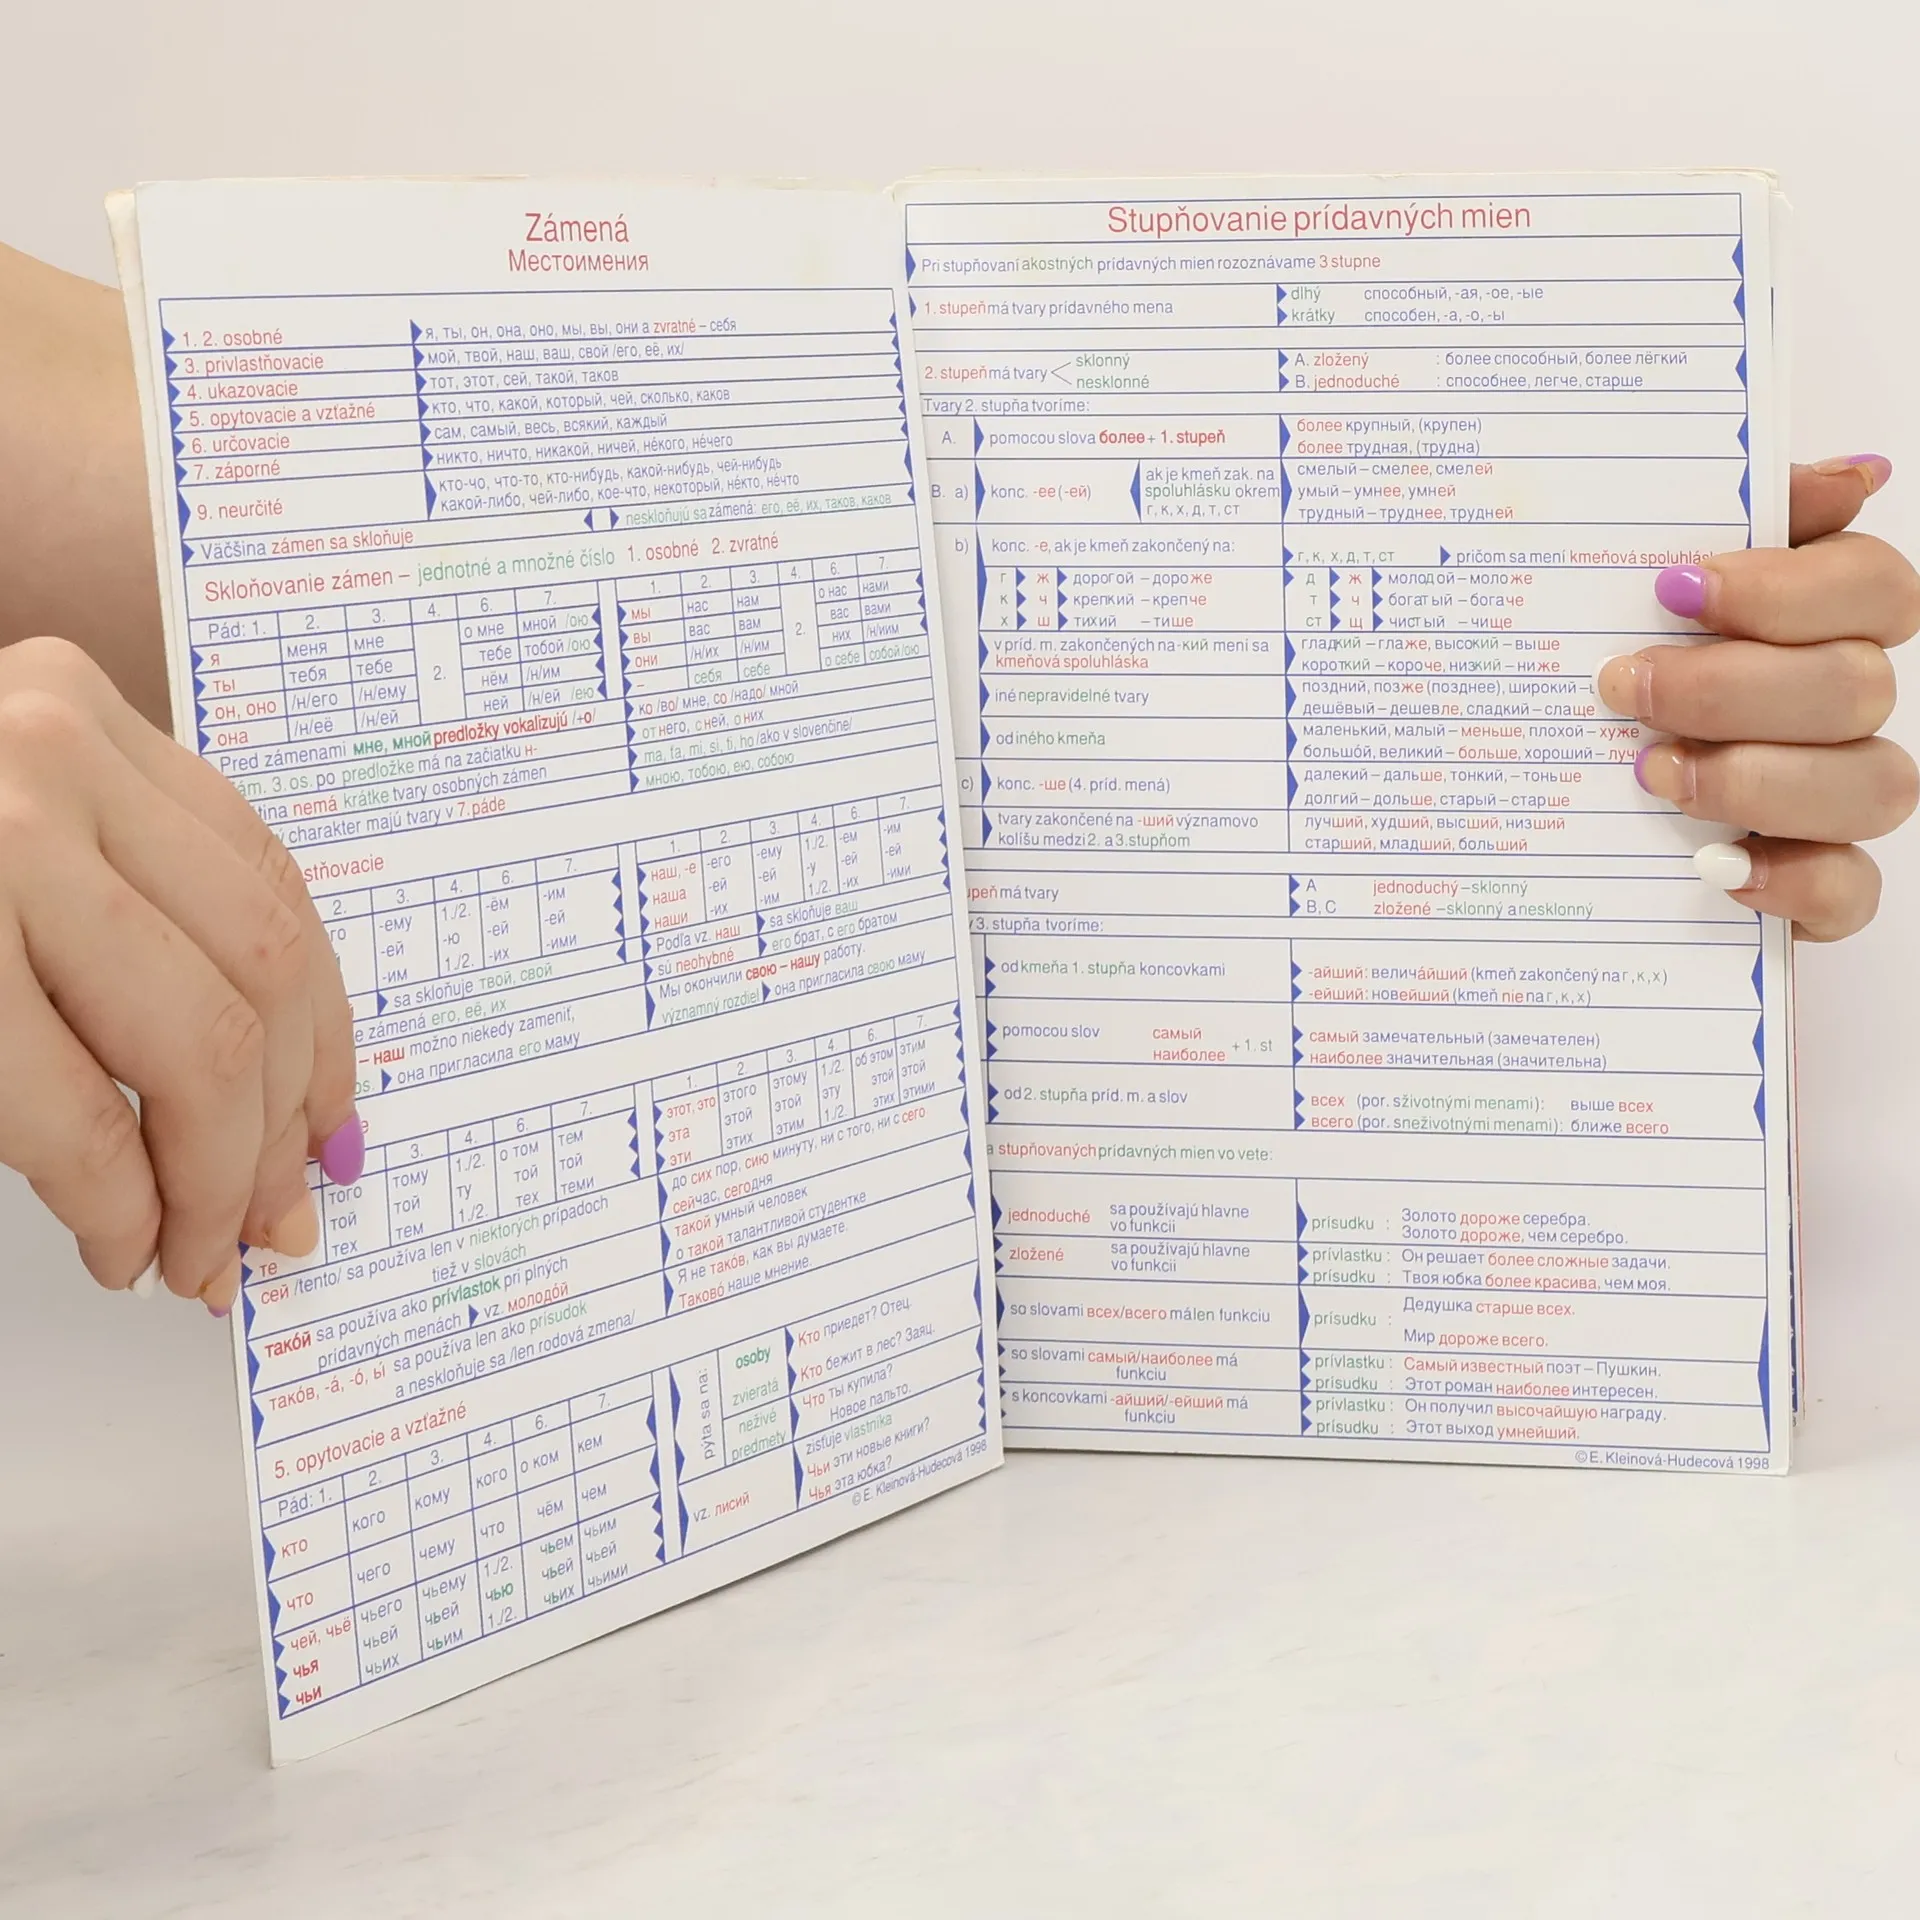 Zámená
Местоимения
1. 2. osobné я, ты, он, она, оно, мы, вы, они a zvratné – себя
3. privlastňovacie мой, твой, наш, ваш, свой /его, её, их/
4. ukazovacie тот, этот, сей, такой, таков
5. opytovacie a vzťažné кто, что, какой, который, чей, сколько, каков
6. určovacie сам, самый, весь, всякий, каждый
7. záporné никто, ничто, никакой, ничей, не́кого, не́чего
9. neurčité кто-чо, что-то, кто-нибудь, какой-нибудь, чей-нибудь
какой-либо, чей-либо, кое-что, некоторый, не́кто, не́что
Väčšina zámen sa skloňuje neskloňujú sa zámená: его, её, их, таков, каков
Skloňovanie zámen – jednotné a množné číslo 1. osobné 2. zvratné
Pád: 1. 2. 3. 4. 6. 7.
я меня мне 2. о мне мной /ою
ты тебя тебе тебе тобой /ою
он, оно /н/его /н/ему нём /н/им
она /н/её /н/ей ней /н/ей /ею
1. 2. 3. 4. 6. 7.
мы нас нам 2. о нас нами
вы вас вам вас вами
они /н/их /н/им них /н/иим
– себя себе о себе собой/ою
Pred zámenami мне, мной predložky vokalizujú /+o/ ко /во/ мне, со /надо/ мной
zám. 3. os. po predložke má na začiatku н- от него, с ней, о них
nemá krátke tvary osobných zámen ma, ťa, mi, si, ti, ho /ako v slovenčine/
charakter majú tvary v 7. páde мною, тобою, ею, собою
stňovacie
2. 3. 4. 6. 7.
го -ему 1./2. -ём -им
-ей -ю -ей -ей
-им 1./2. -их -ими
1. 2. 3. 4. 6. 7.
наш, -е -его -ему 1./2. -ем -им
наша -ей -ей -у -ей -ей
наши -их -им 1./2. -их -ими
sa skloňuje твой, свой Podľa vz. наш sa skloňuje ваш
zámená его, её, их sú neohybné его брат, с его братом
– наш možno niekedy zameniť, Мы окончили свою – нашу работу.
os. она пригласила его маму významný rozdiel она пригласила свою маму
3. 4. 6. 7.
того тому 1./2. о том тем
той той ту той той
те тех тем 1./2. тех теми
1. 2. 3. 4. 6. 7.
этот, это этого этому 1./2. об этом этим
эта этой этой эту этой этой
эти этих этим 1./2. этих этими
сей /tento/ sa používa len v niektorých prípadoch до сих пор, сию минуту, ни с того, ни с сего
tiež v slovách сейчас, сегодня
тако́й sa používa ako prívlastok pri plných такой умный человек
prídavných menách vz. молодо́й о такой талантливой студентке
тако́в, -а́, -о́, ы́ sa používa len ako prísudok Я не тако́в, как вы думаете.
a neskloňuje sa /len rodová zmena/ Таково́ наше мнение.
5. opytovacie a vzťažné
Pád: 1. 2. 3. 4. 6. 7.
кто кого кому кого о ком кем
что чего чему что чём чем
чей, чьё чьего чьему 1./2. чьем чьим
чья чьей чьей чью чьей чьей
чьи чьих чьим 1./2. чьих чьими
pýta sa na: osoby Кто приедет? Отец.
zvieratá Кто бежит в лес? Заяц.
neživé predmety Что ты купила? Новое пальто.
vz. лисий zisťuje vlastníka
Чьи эти новые книги?
Чья эта юбка?
© E. Kleinová-Hudecová 1998
Stupňovanie prídavných mien
Pri stupňovaní akostných prídavných mien rozoznávame 3 stupne
1. stupeň má tvary prídavného mena dlhý способный, -ая, -ое, -ые
krátky способен, -а, -о, -ы
2. stupeň má tvary sklonný A. zložený : более способный, более лёгкий
nesklonné B. jednoduché : способнее, легче, старше
Tvary 2. stupňa tvoríme:
A. pomocou slova более + 1. stupeň более крупный, (крупен)
более трудная, (трудна)
B. a) konc. -ее (-ей) ak je kmeň zak. na смелый – смелее, смелей
spoluhlásku okrem умый – умнее, умней
г, к, х, д, т, ст трудный – труднее, трудней
b) konc. -е, ak je kmeň zakončený na: г, к, х, д, т, ст pričom sa mení kmeňová
г ж дорогой – дороже д ж молодой – моложе
к ч крепкий – крепче т ч богатый – богаче
х ш тихий – тише ст щ чистый – чище
v príd. m. zakončených na -кий mení sa гладкий – глаже, высокий – выше
kmeňová spoluhláska короткий – короче, низкий – ниже
iné nepravidelné tvary поздний, позже (позднее), широкий –
дешёвый – дешевле, сладкий – слаще
od iného kmeňa маленький, малый – меньше, плохой – хуже
большо́й, великий – больше, хороший –
c) konc. -ше (4. príd. mená) далекий – дальше, тонкий, – тоньше
долгий – дольше, старый – старше
tvary zakončené na -ший významovo лучший, худший, высший, низший
kolíšu medzi 2. a 3. stupňom старший, младший, больший
má tvary A jednoduchý – sklonný
B, C zložené – sklonný a nesklonný
3. stupňa tvoríme:
od kmeňa 1. stupňa koncovkami -айший: велича́йший (kmeň zakončený na г, к, х)
-ейший: новейший (kmeň nie na г, к, х)
pomocou slov самый наиболее + 1. st самый замечательный (замечателен)
наиболее значительная (значительна)
od 2. stupňa príd. m. a slov всех (por. s životnými menami): выше всех
всего (por. s neživotnými menami): ближе всего
a stupňovaných prídavných mien vo vete:
jednoduché sa používajú hlavne vo funkcii prísudku : Золото дороже серебра.
Золото дороже, чем серебро.
zložené sa používajú hlavne vo funkcii prívlastku : Он решает более сложные задачи.
prísudku : Твоя юбка более красива, чем моя.
so slovami всех/всего má len funkciu prísudku : Дедушка старше всех.
Мир дороже всего.
so slovami самый/наиболее má funkciu prívlastku : Самый известный поэт – Пушкин.
prísudku : Этот роман наиболее интересен.
s koncovkami -айший/-ейший má funkciu prívlastku : Он получил высочайшую награду.
prísudku : Этот выход умнейший.
© E. Kleinová-Hudecová 1998